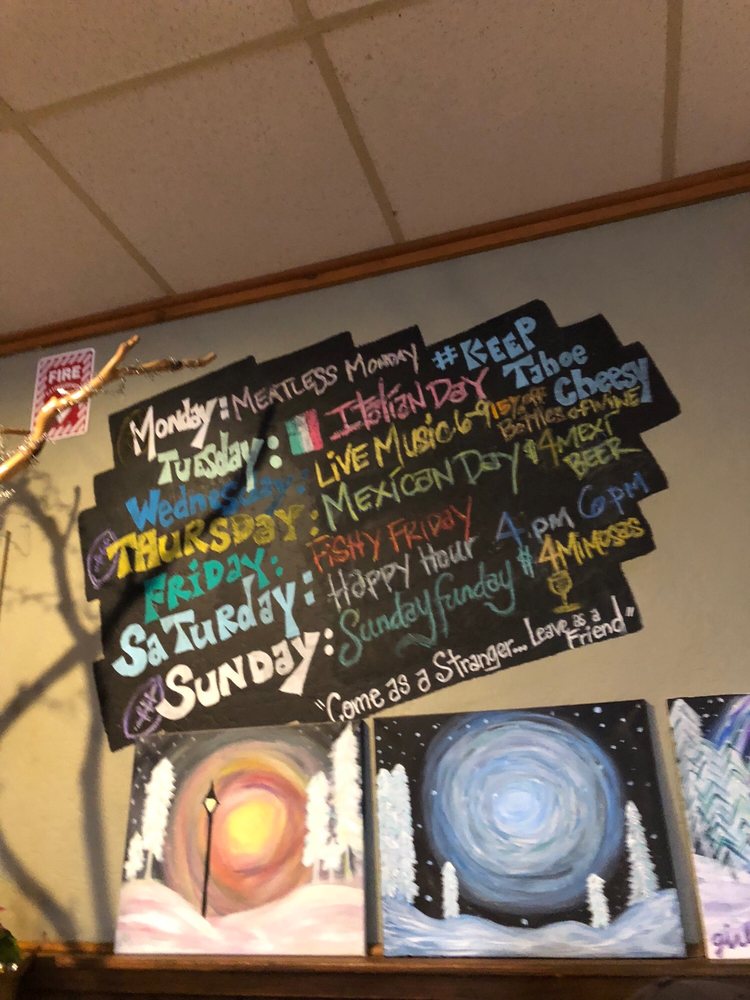 FIRE
Monday: MEATLESS MONDAY #KEEP Tahoe Cheesy
TUESDAY: Italian DAY
Wednesday: LIVE MUSIC 6-9 Bottles of WINE
THURSDAY: MEXICAN DAY $4 MEXI BEER
FRIDAY: FISHY FRIDAY
SaTURday: HAPPY HOUR 4 pm 6 pm
SUNDAY: Sunday funday $4 MIMOSAS
"Come as a Stranger... Leave as a Friend"